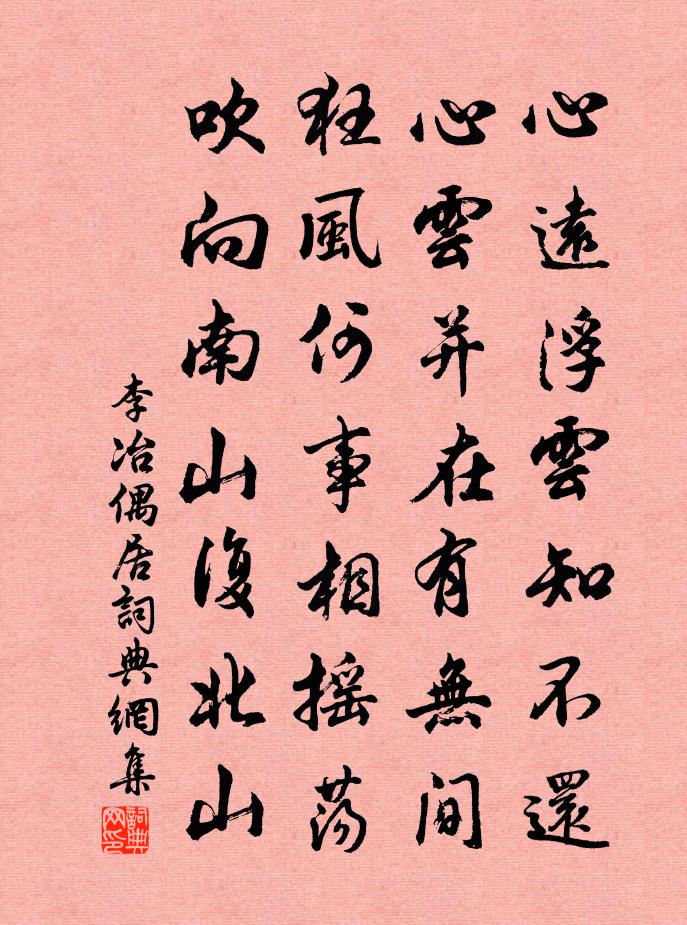 心遠浮雲知不還
心雲并在有無間
狂風何事相摇蕩
吹向南山復北山
李冶偶居詞典網集
詞典网印